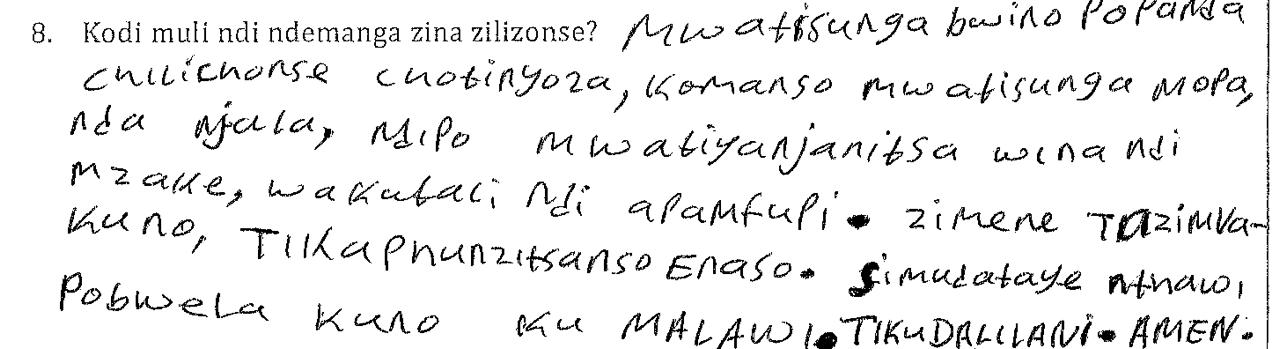 8. Kodi muli ndi ndemanga zina zilizonse? Mwatisunga bwino Popanda
chilichonse chotinyoza, Komanso mwatisunga mopa,
nda njala, Ndipo mwatiyanjanitsa wina ndi
mzake, wakutali Ndi apamfupi. zimene Tazimva-
Kuno, TIKaphunzitsanso Enaso. Simudataye nthawi
Pobwela Kuno Ku MALAWI. TIKUDALILANI. AMEN.